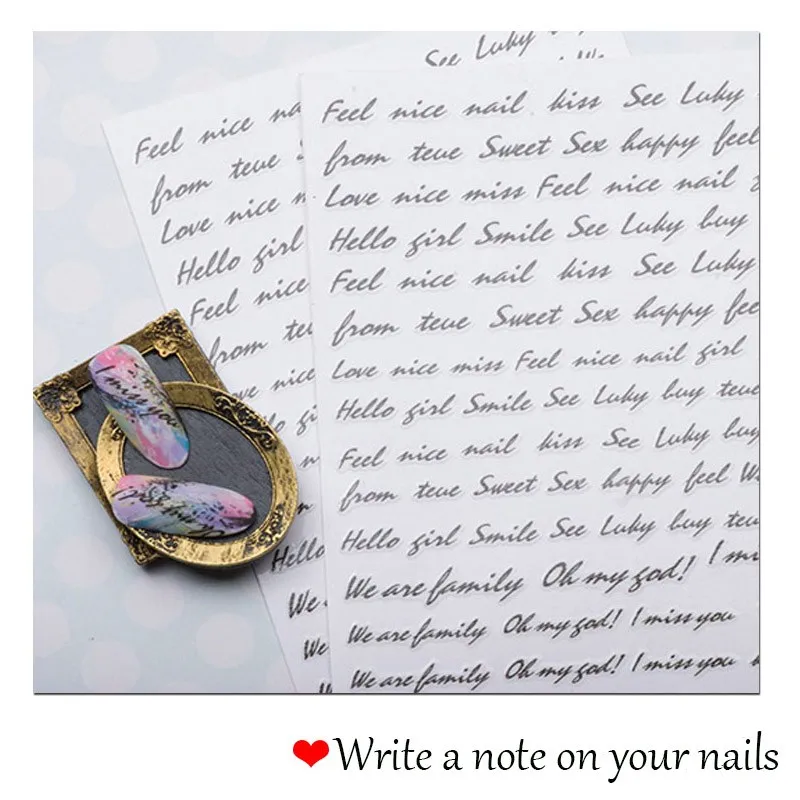 See Luky
Feel nice na
from teue S
Love nice m
Hello girl
Feel nice
from te
ve nice
Hello
We
We
Feel nice nail kiss See Luky
from teue Sweet Sex happy feel
Love nice miss Feel nice nail
Hello girl Smile See Luky buy
Feel nice nail kiss See Luky
from teue Sweet Sex happy fee
Love nice miss Feel nice nail girl
Hello girl Smile See Luky buy teue
Feel nice nail kiss See Luky buy
from teue Sweet Sex happy feel W
Hello girl Smile See Luky buy teu
We are family Oh my god! I mi
We are family Oh my god! I miss you
We are family Oh my god! I miss you
I miss you
Write a note on your nails